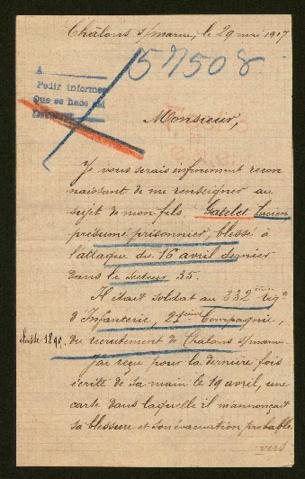 Châlons s/marne, le 29 mai 1917
57508
A
Pedir informes
Que se hace
Monsieur,
Je vous serais infiniment recon
naissant de me renseigner au
sujet de mon fils. Gatelet Lucien
présumé prisonnier, blessé à
l'attaque du 16 avril dernier
dans le secteur 35.
Il était soldat au 332ème rég't
d'Infanterie, 21ème Compagnie,
du recrutement de Châlons s/marne
J'ai reçu pour la dernière fois
écrite de sa main le 19 avril, une
carte dans laquelle il m'annonçait
sa blessure et son évacuation probable
vers